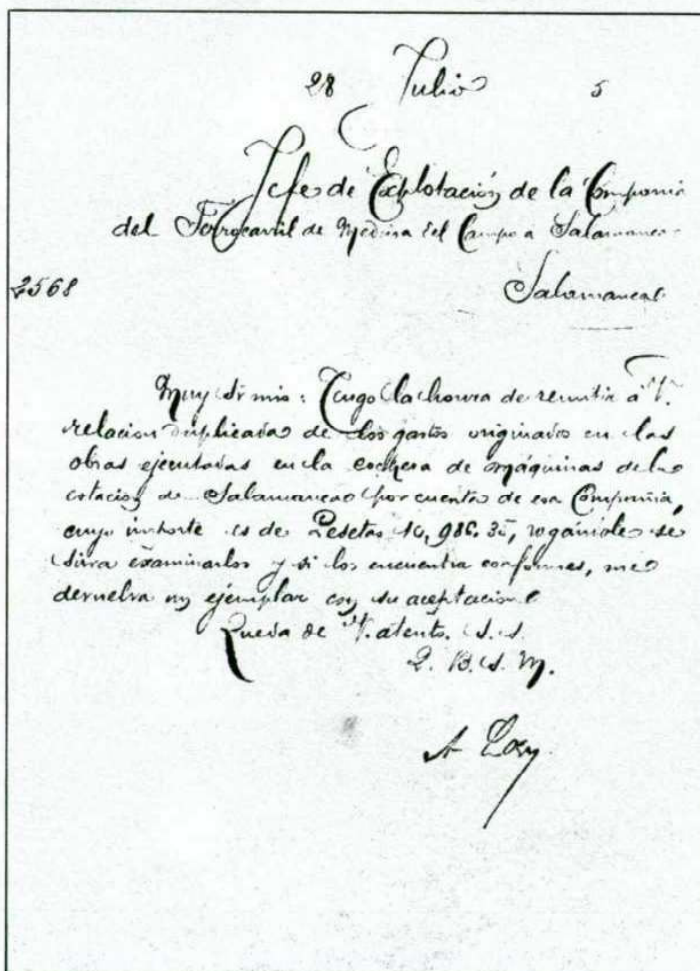 28 Julio 5
Jefe de Explotación de la Compañia
del Ferrocarril de Medina del Campo a Salamanca
2568 Salamanca
Muy Sr mio: Tengo la honra de remitir a V.
relacion duplicada de los gastos originados en las
obras ejecutadas en la cochera de máquinas de la
estación de Salamanca por cuenta de esa Compañia,
cuyo importe es de Pesetas 10,986.35, rogandole se
sirva examinarlos y si los encuentra conformes, me
devuelva un ejemplar con su aceptacion.
Queda de V. atento. s.s.
Q. B. s. M.
A